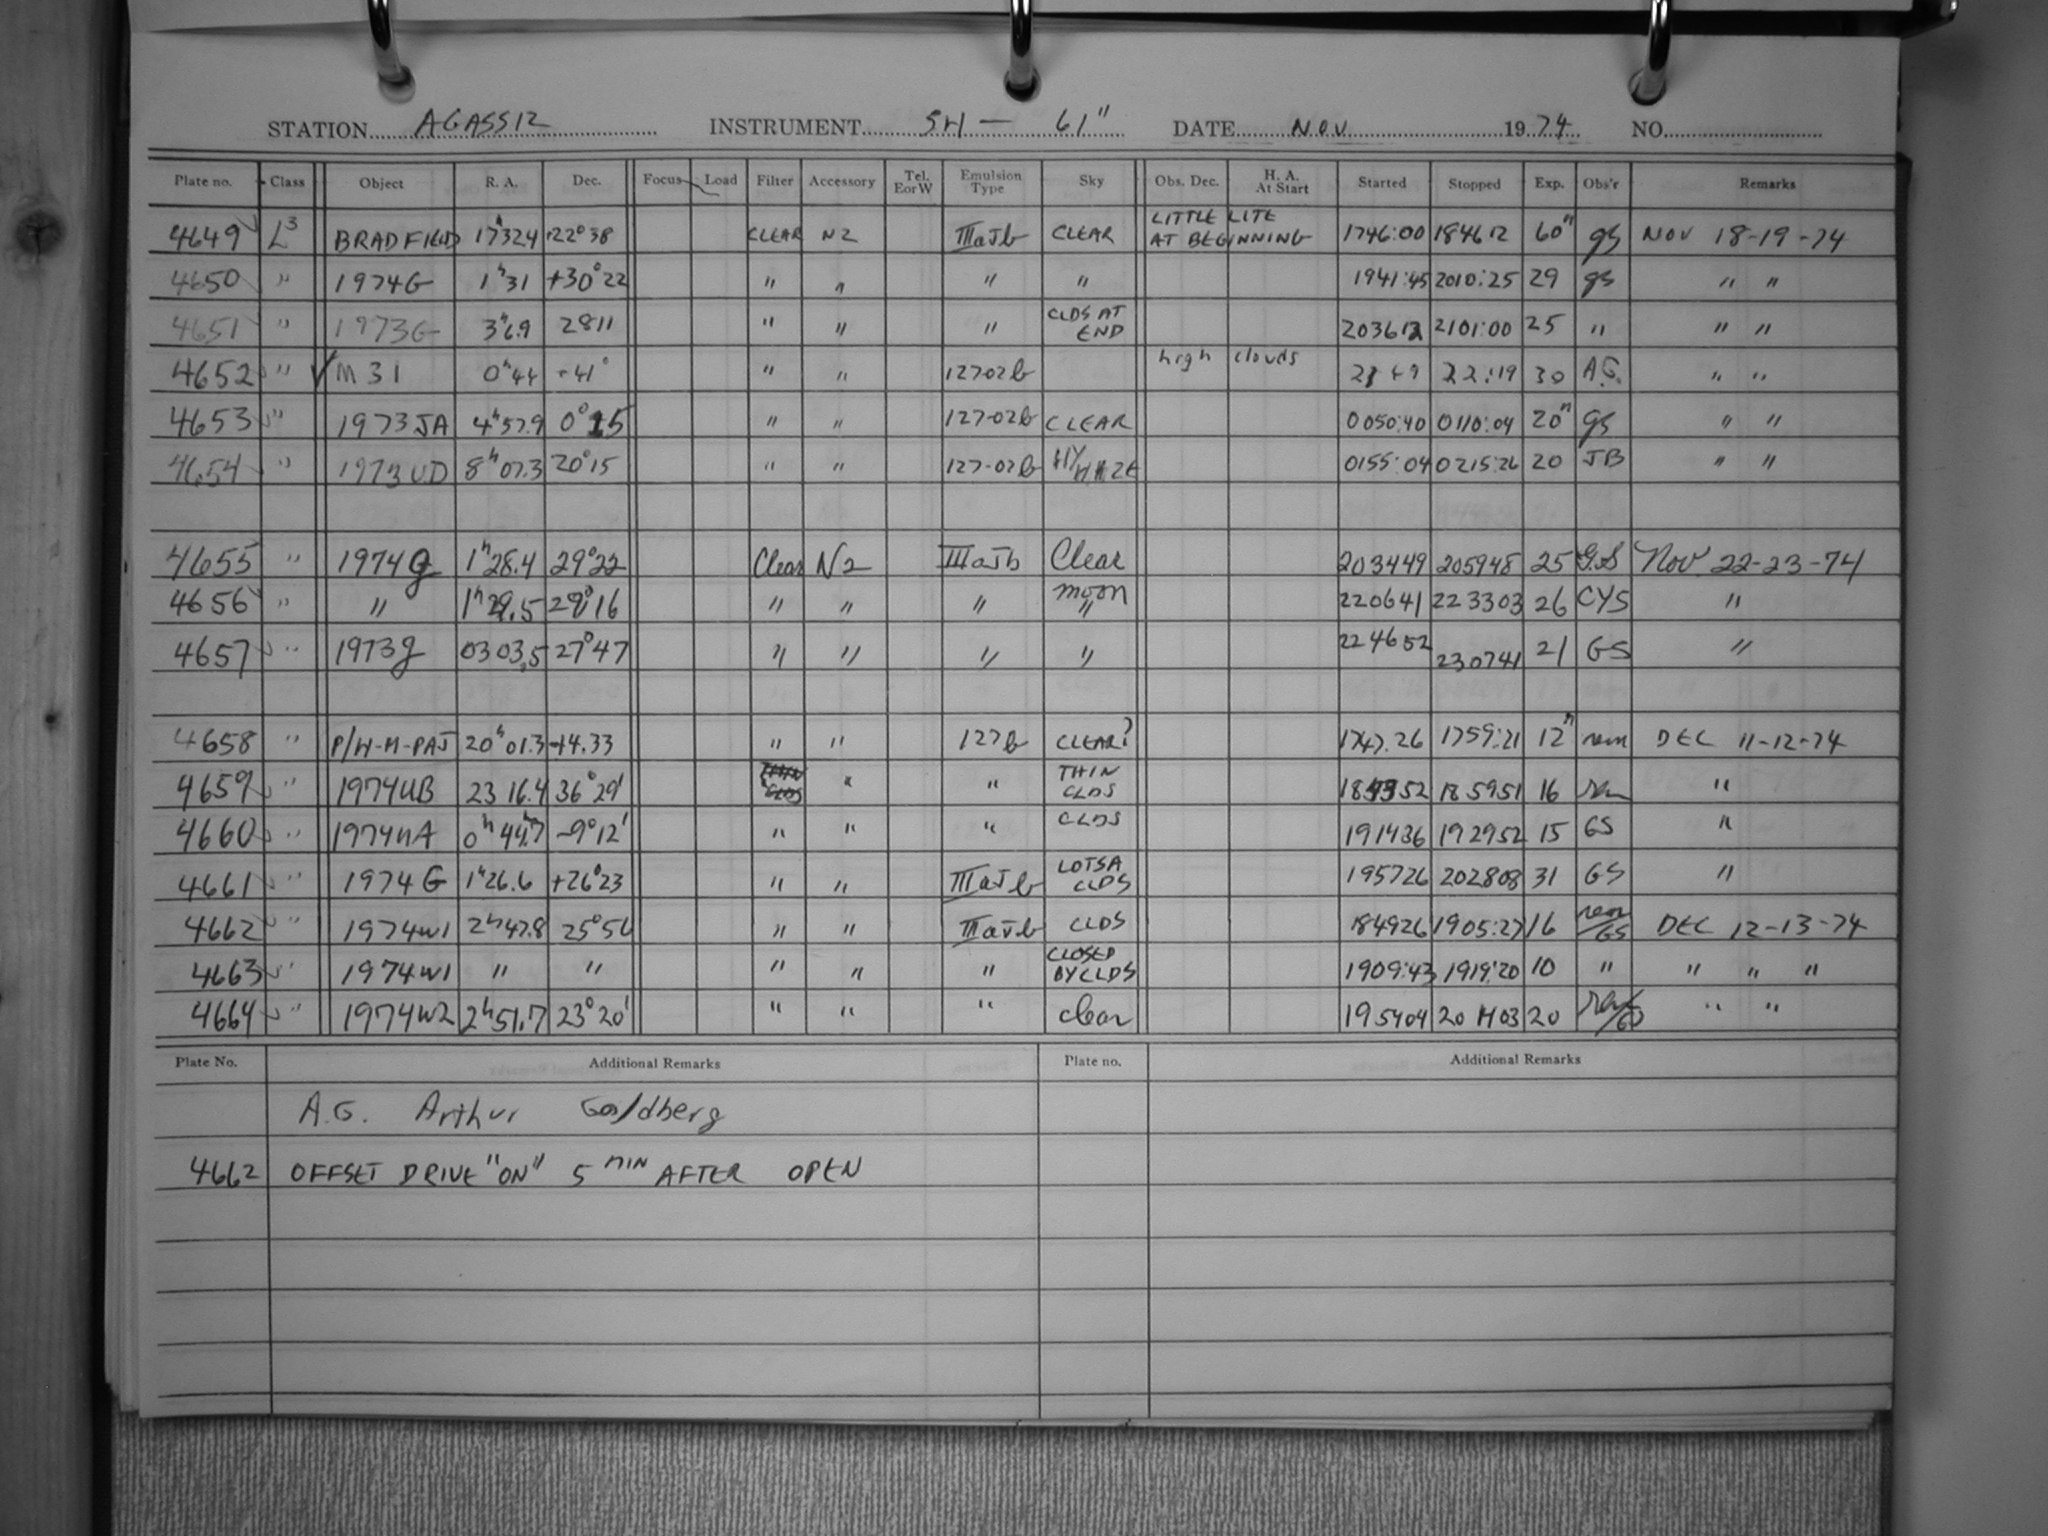 STATION AGASSIZ INSTRUMENT SH — 61" DATE NOV 1974 NO.
Plate no. Class Object R. A. Dec. Focus Load Filter Accessory Tel. E or W Emulsion Type Sky Obs. Dec. H. A. At Start Started Stopped Exp. Obs'r Remarks
4649 L3 BRADFIELD 17h324 +22°38 CLEAR N2 IIIaJb CLEAR LITTLE LITE AT BEGINNING 1746:00 184612 60m gs NOV 18-19-74
4650 " 1974G 1h31 +30°22 " " " " 1941:45 2010:25 29 gs " "
4651 " 1973G 3h6.9 2811 " " " CLDS AT END 203612 2101:00 25 " " "
4652 " ✓ M 31 0h44 +41° " " 127-02b high clouds 2149 22:19 30 A.G. " "
4653 " 1973JA 4h57.9 0°15 " " 127-02b CLEAR 0050:40 0110:04 20m gs " "
4654 " 1973UD 8h07.3 20°15 " " 127-02b HAZE 0155:04 0215:26 20 JB " "
4655 " 1974g 1h28.4 29°22 Clear N2 IIIaJb Clear 203449 205948 25 G.S Nov. 22-23-74
4656 " " 1h29.5 29°16 " " " moon " 220641 223303 26 CYS "
4657 " 1973g 0303.5 27°47 " " " " 224652 230741 21 GS "
4658 " P/H-M-PAJ 20h01.3 -14.33 " " 127b CLEAR? 1747.26 1759:21 12m rem DEC 11-12-74
4659 " 1974UB 23 16.4 36°29' " " THIN CLDS 52 185951 16 rem "
4660 " 1974UA 0h44.7 -9°12' " " " CLDS 191436 192952 15 GS "
4661 " 1974G 1h26.6 +26°23 " " IIIaJb LOTSA CLDS 195726 202808 31 GS "
4662 " 1974W1 2h47.8 25°56 " " IIIaJb CLDS 184926 1905:27 16 rem/GS DEC 12-13-74
4663 " 1974W1 " " " " " CLOSED BY CLDS 1909:43 1919:20 10 " " " "
4664 " 1974W2 2h51.7 23°20' " " " clear 195404 201403 20 " "
Plate No. Additional Remarks Plate no. Additional Remarks
A.G. Arthur Goldberg
4662 OFFSET DRIVE "ON" 5 MIN AFTER OPEN